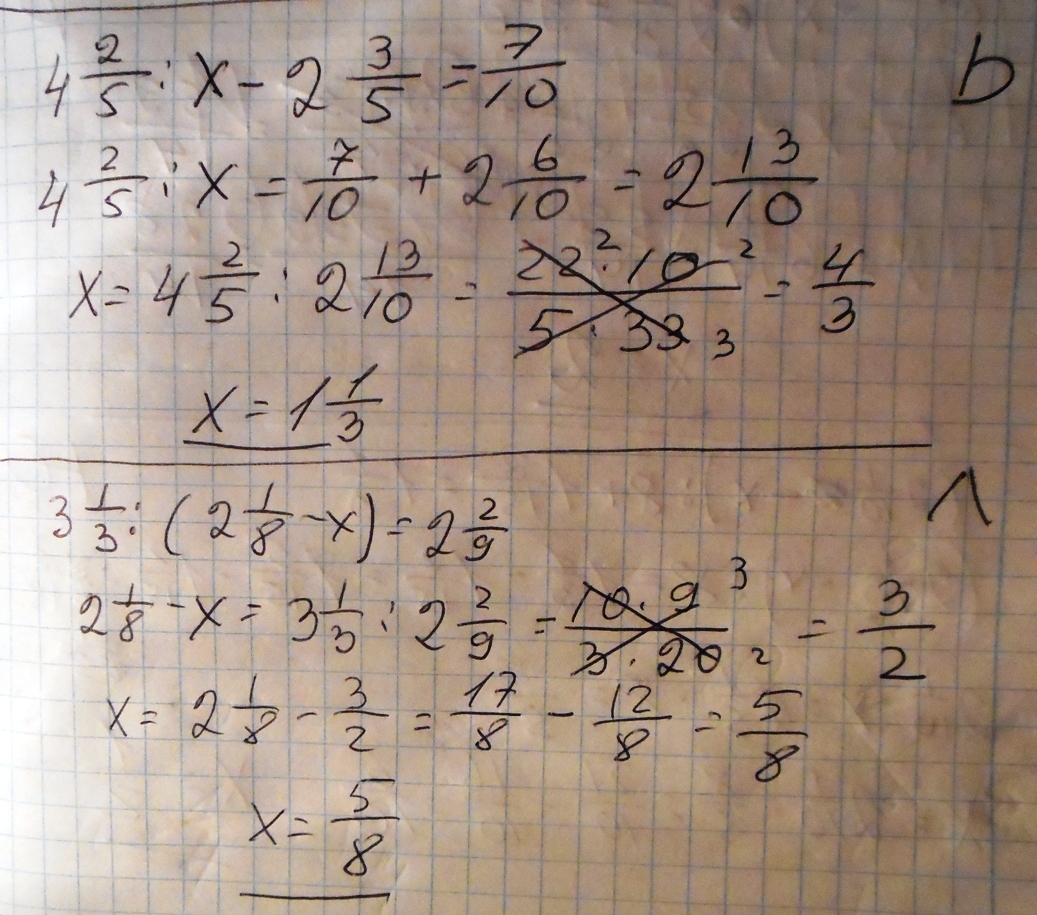 4 2/5 : x - 2 3/5 = 7/10 b
4 2/5 : x = 7/10 + 2 6/10 = 2 13/10
x = 4 2/5 : 2 13/10 = 22² · 10² / 5 · 33 3 = 4/3
x = 1 1/3
3 1/3 : (2 1/8 - x) = 2 2/9 Λ
2 1/8 - x = 3 1/3 : 2 2/9 = 10 · 9 3 / 3 · 20 2 = 3/2
x = 2 1/8 - 3/2 = 17/8 - 12/8 = 5/8
x = 5/8